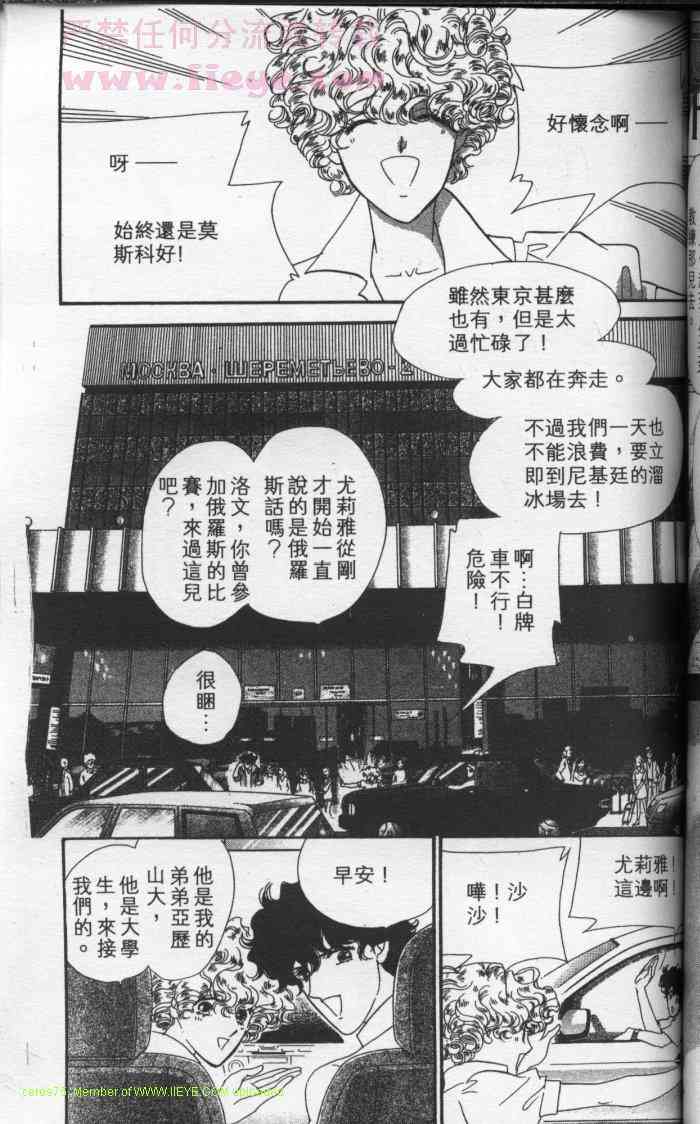 嚴禁任何分流及轉載
www.iieye.com
好懷念啊——
呀——
始終還是莫
斯科好!
雖然東京甚麼
也有，但是太
過忙碌了！
大家都在奔走。
不過我們一天也
不能浪費，要立
即到尼基廷的溜
冰場去！
МОСКВА·ШЕРЕМЕТЬЕВО-2
尤莉雅從剛
才開始一直
說的是俄羅
斯話嗎？
洛文，你曾參
加俄羅斯的比
賽，來過這兒
吧？
啊…白牌
車不行！
危險！
很睏…
尤莉雅！
這邊啊！
嘩！沙
沙！
早安！
他是我的
弟弟亞歷
山大，
他是大學
生，來接
我們的。
Member of WWW.IIEYE.COM